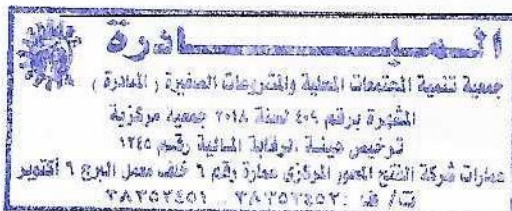 المبادرة
جمعية تنمية المجتمعات المحلية والمشروعات الصغيرة ( المبادرة )
المشهرة برقم ٤٠٩ لسنة ٢٠١٨ جمعية مركزية
ترخيص هيئة الرقابة المالية رقم ١٢٤٥
عمارات شركة النصر المحور المركزى عمارة رقم ٦ خلف معمل البرج ٦ أكتوبر
ت/ ف: ٣٨٣٥٢٤٥٢ _ ٣٨٣٥٢٤٥١